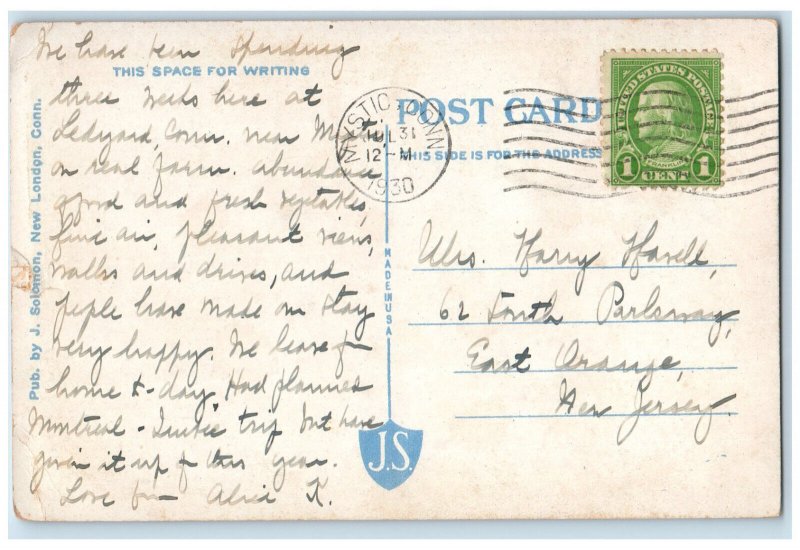 We have been spending
THIS SPACE FOR WRITING
three weeks here at
Ledyard, Conn. near Mystic
on real farm. abundance
good and fresh vegetables,
fine air, pleasant views,
walks and drives, and
people have made our stay
very happy. We leave for
home to-day. Had planned
Montreal - Quebec trip but have
given it up for this year.
Love from Alice K.
Pub. by J. Solomon, New London, Conn.
MADE IN USA
J.S.
POST CARD
THIS SIDE IS FOR THE ADDRESS
MYSTIC, CONN
JUL 31
12-M
1930
UNITED STATES POSTAGE
FRANKLIN
1 CENT 1
Mrs. Harry Havell,
62 South Parkway,
East Orange,
New Jersey.